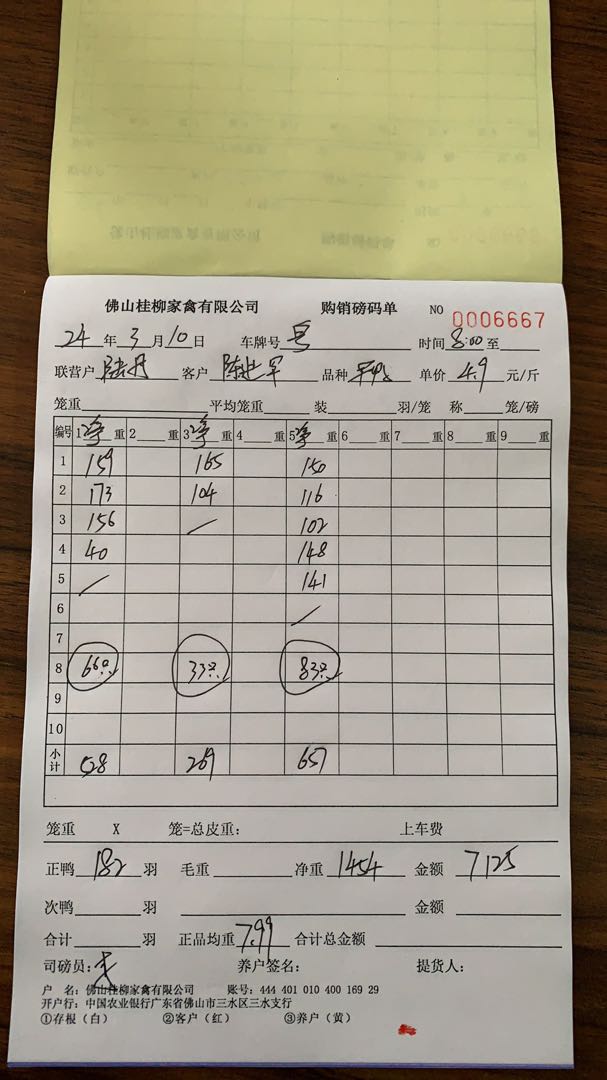 佛山桂柳家禽有限公司 购销磅码单 NO 0006667
24 年 3 月 10 日 车牌号 时间 8:00 至
联营户 客户 品种 单价 4.9 元/斤
笼重 平均笼重 装 羽/笼 称 笼/磅
编号 1 净 重 2 重 3 净 重 4 重 5 净 重 6 重 7 重 8 重 9 重
1 159 165 150
2 173 104 116
3 156 / 102
4 40 148
5 / 141
6 /
7
8 66只 33只 83只
9
10
小计 528 269 657
笼重 X 笼=总皮重: 上车费
正鸭 182 羽 毛重 净重 1454 金额 7125
次鸭 羽 金额
合计 羽 正品均重 7.99 合计总金额
司磅员: 养户签名: 提货人:
户 名: 佛山桂柳家禽有限公司 账号: 444 401 010 400 169 29
开户行: 中国农业银行广东省佛山市三水区三水支行
①存根(白) ②客户(红) ③养户(黄)